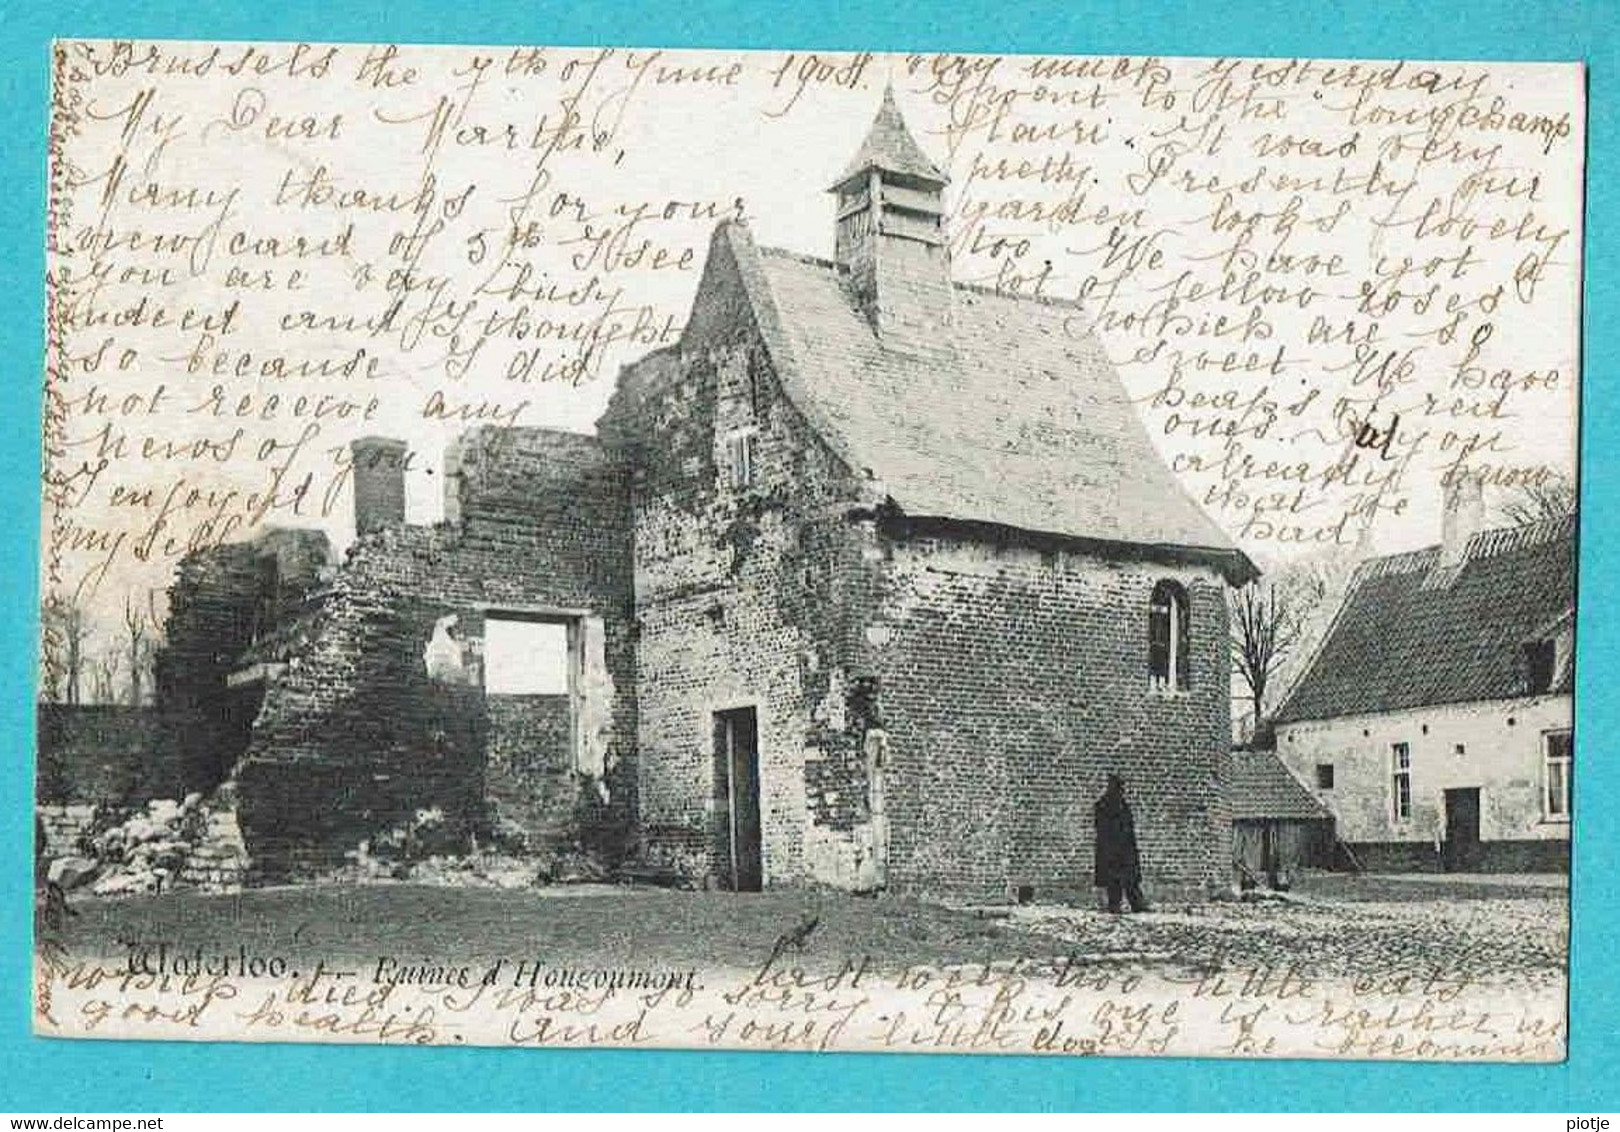 Brussels the 7th of June 1908.
My Dear Marthe,
Many thanks for your
view card of 5th I see
you are very busy
indeed and I thought
so because I did
not receive any
news of you.
I enjoyed
myself
very much yesterday.
I went to the "Longchamp
fleuri". It was very
pretty. Presently our
garden looks lovely
too We have got a
lot of yellow roses
which are so
sweet. We have
heaps of red
ones. Did you
already know
that we
had
Waterloo. — Ruines d'Hougoumont.
last week two little cats
which died. I was so sorry. This one is rather in
good health. And your little dog? Is he becoming
www.delcampe.net
piotje